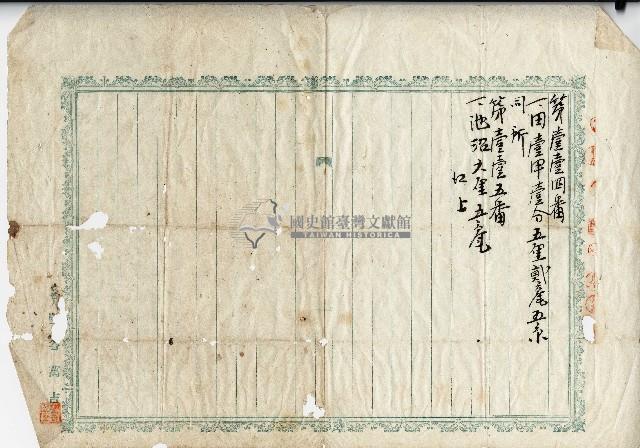 第壹壹四番
一、田壹甲壹分五厘貳毫五糸
同所
第壹壹五番
一、池沼六厘五毫
以上
國史館臺灣文獻館
TAIWAN HISTORICA